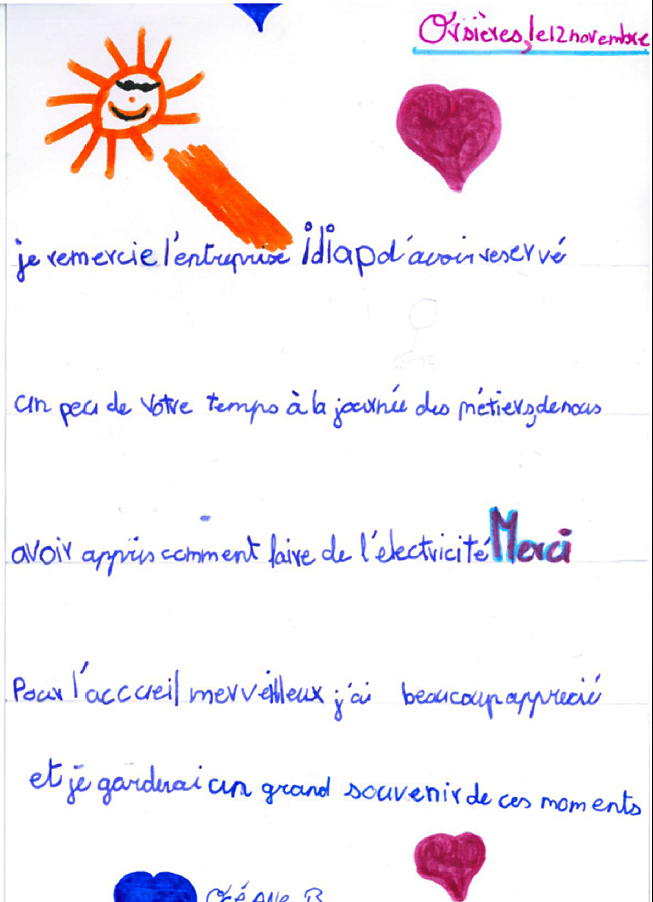 Orsières, le 12 novembre
je remercie l'entreprise idiap d'avoir reservé
un peu de votre temps à la journée des métiers, de nous
avoir appris comment faire de l'électricité Merci
Pour l'acccueil merveilleux j'ai beaucoup apprecié
et je garderai un grand souvenir de ces moments
Océane B